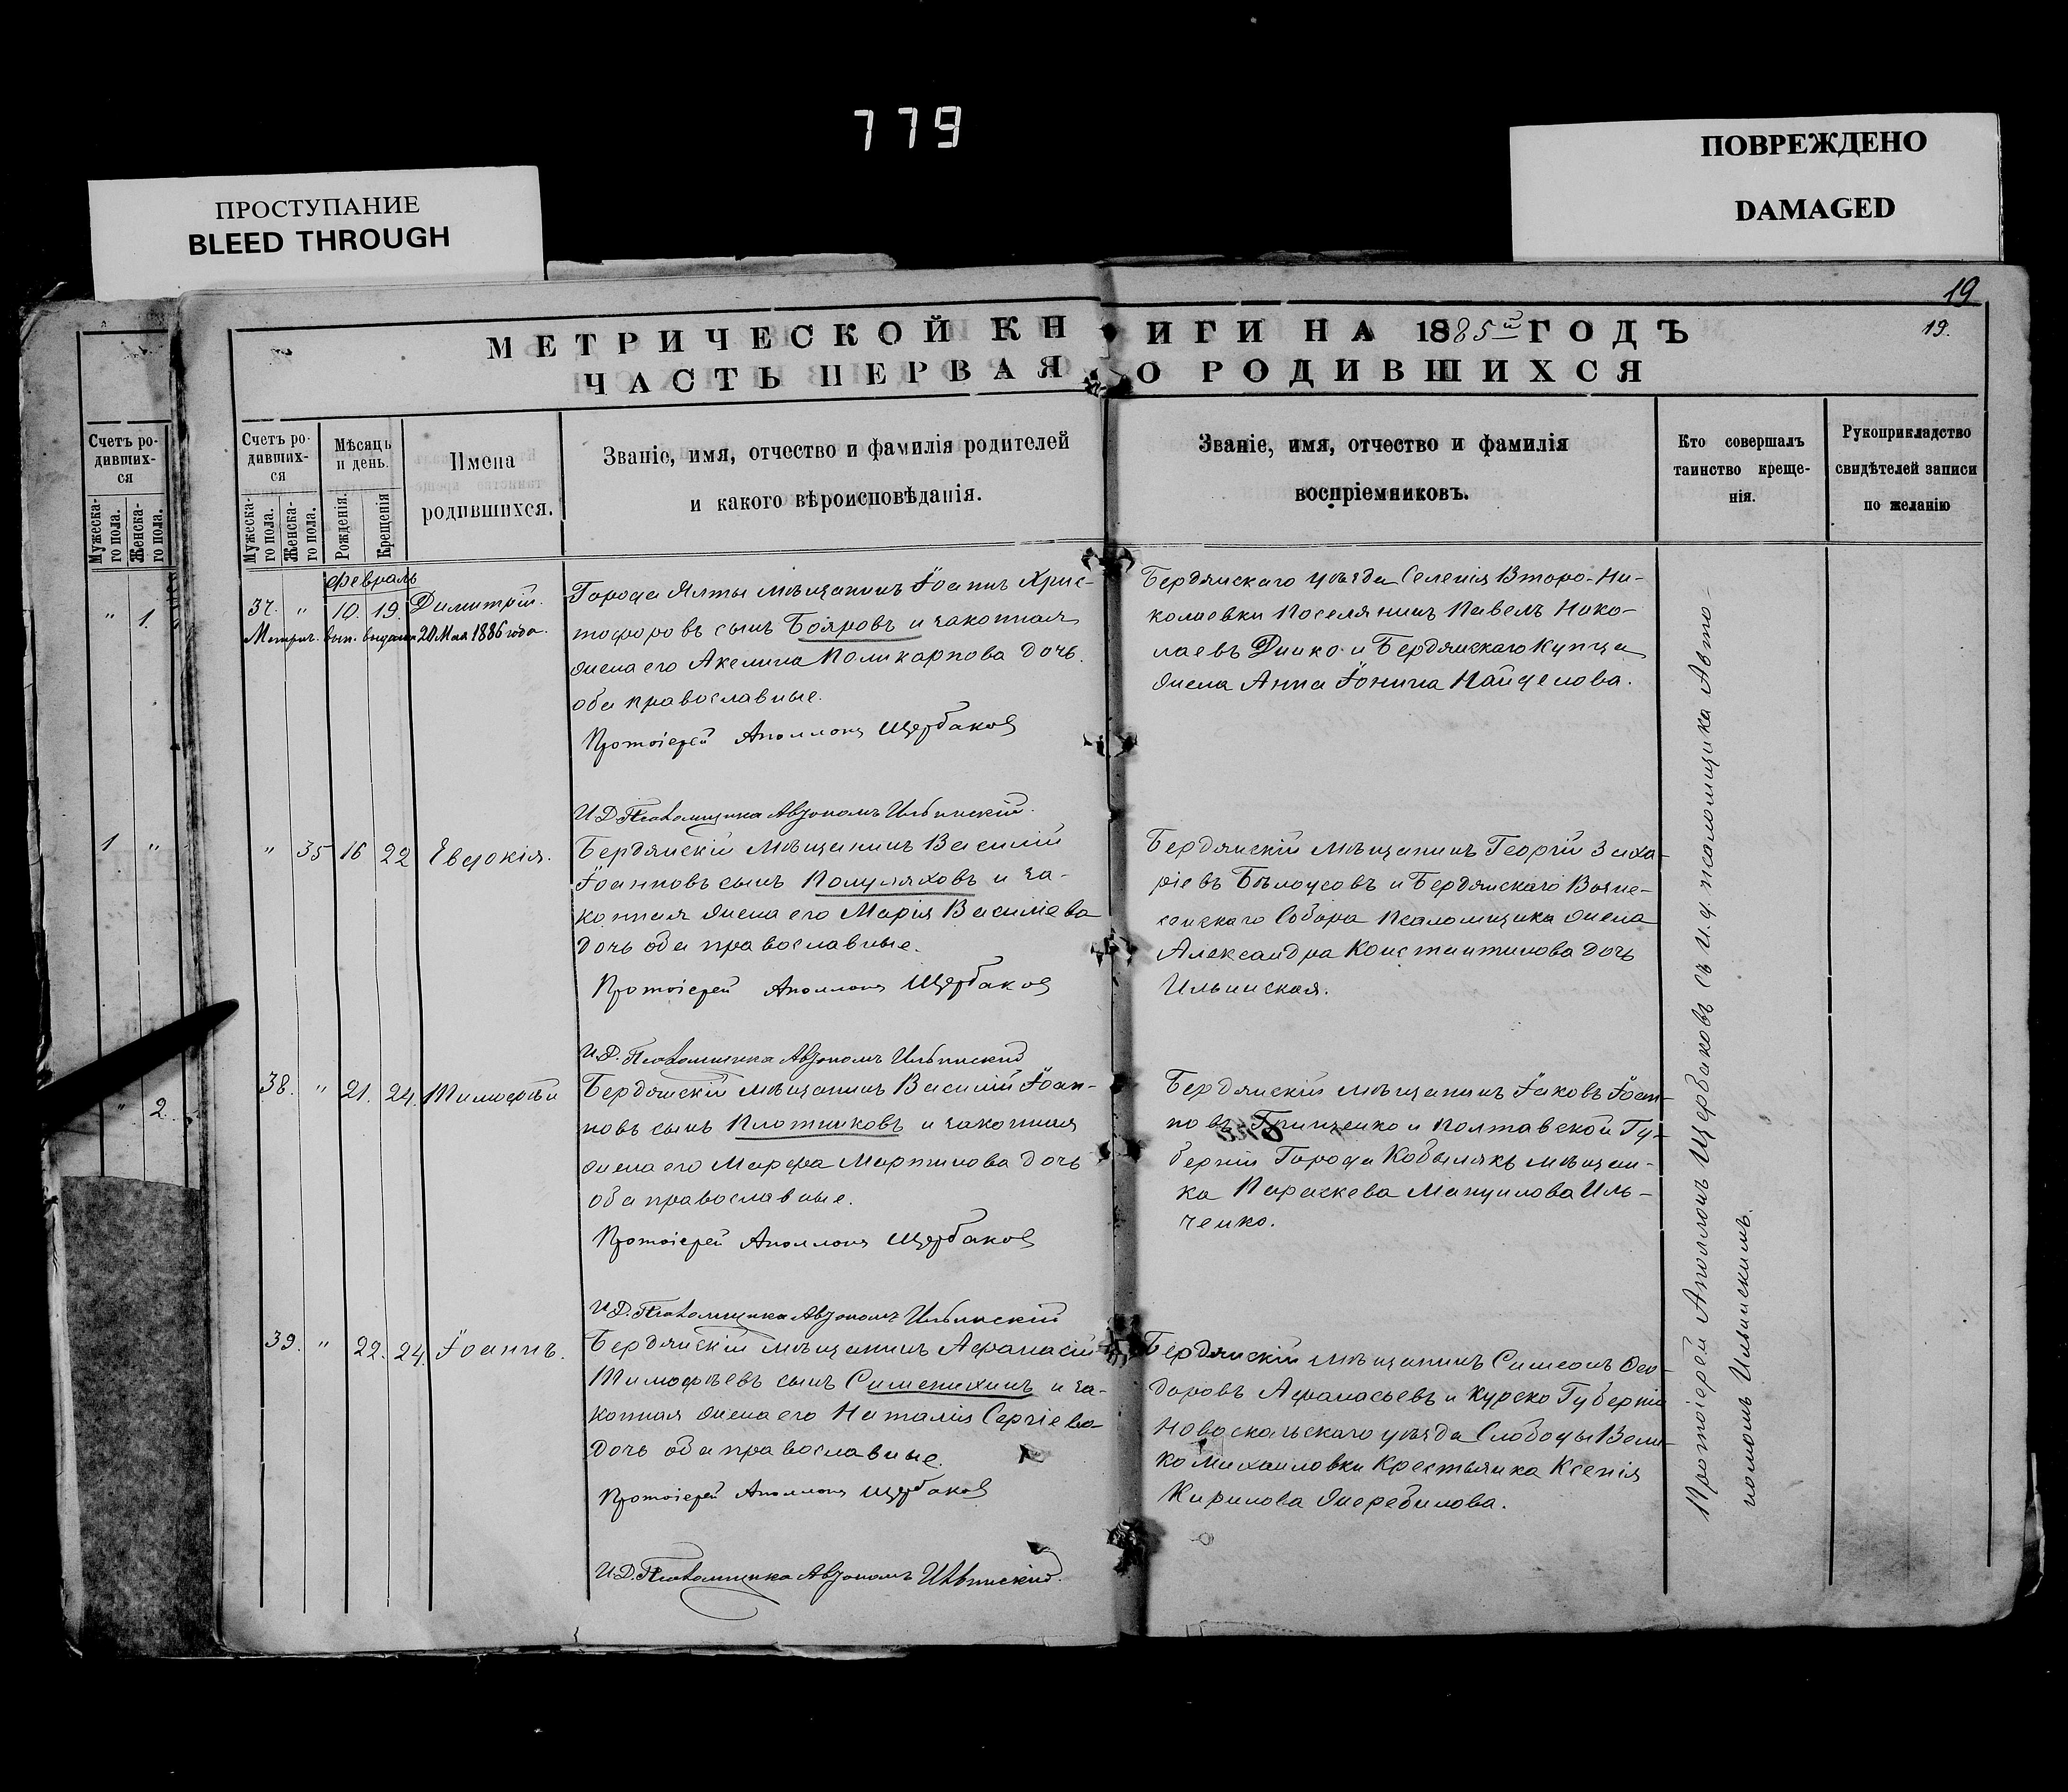 779
ПРОСТУПАНИЕ
BLEED THROUGH
ПОВРЕЖДЕНО
DAMAGED
19
19.
МЕТРИЧЕСКОЙ КНИГИ НА 1885й ГОДЪ
ЧАСТЬ ПЕРВАЯ О РОДИВШИХСЯ
Счетъ ро-
дивших-
ся
Мужеска-
го пола.
Женска-
го пола.
" 1.
1 "
" 2.
Счетъ ро-
дивших-
ся
Мужеска-
го пола.
Женска-
го пола.
Мѣсяцъ
и день.
Рожденія.
Крещенія
Имена
родившихся.
Званіе, имя, отчество и фамилія родителей
и какого вѣроисповѣданія.
Званіе, имя, отчество и фамилія
воспріемниковъ.
Кто совершалъ
таинство креще-
нія.
Рукоприкладство
свидѣтелей записи
по желанію
Февраль
37. " 10. 19. Димитрій.
Метрич. вып. выдана 20 Мая 1886 года.
Города Ялты мѣщанинъ Іоаннъ Хрис-
тофоровъ сынъ Бояровъ и законная
жена его Акелина Поликарпова дочь.
оба православные.
Протоіерей Аполлонъ Щербаковъ
И.Д. Псаломщика Автономъ Ильинскій.
Бердянскаго уѣзда Селенія Второ-Ни-
колаевки Поселянинъ Павелъ Нико-
лаевъ Динко и Бердянскаго Купца
жена Анна Іонина Найденова.
" 35 16 22 Евдокія.
Бердянскій мѣщанинъ Василій
Іоанновъ сынъ Полуляховъ и за-
конная жена его Марія Василіева
дочь оба православные.
Протоіерей Аполлонъ Щербаковъ
И.Д. Псаломщика Автономъ Ильинскій
Бердянскій мѣщанинъ Георгій Заха-
ріевъ Бѣлоусовъ и Бердянскаго Возне-
сенскаго Собора Псаломщика жена
Александра Константинова дочь
Ильинская.
38. " 21. 24. Тимофѣй
Бердянскій мѣщанинъ Василій Іоан-
новъ сынъ Плотниковъ и законная
жена его Марфа Мартинова дочь
оба православные.
Протоіерей Аполлонъ Щербаковъ
И.Д. Псаломщика Автономъ Ильинскій
Бердянскій мѣщанинъ Іаковъ Іоан-
новъ Гриценко и Полтавской Гу-
берніи Города Кобылякъ мѣщан-
ка Параскева Мануилова Иль-
ченко.
39. " 22. 24. Іоаннъ.
Бердянскій мѣщанинъ Афанасій
Тимофѣевъ сынъ Сименихинъ и за-
конная жена его Наталія Сергіева
дочь оба православные.
Протоіерей Аполлонъ Щербаковъ
И.Д. Псаломщика Автономъ Ильинскій.
Бердянскій мѣщанинъ Симеонъ Ѳео-
доровъ Афанасьевъ и Курско Губерніи
Новоскальскаго уѣзда Слободы Вели-
ко михаиловки Крестьянка Ксенія
Кирилова Жеребилова.
Протоіерей Аполлонъ Щербаковъ съ и. д. псаломщика Авто-
номомъ Ильинскимъ.